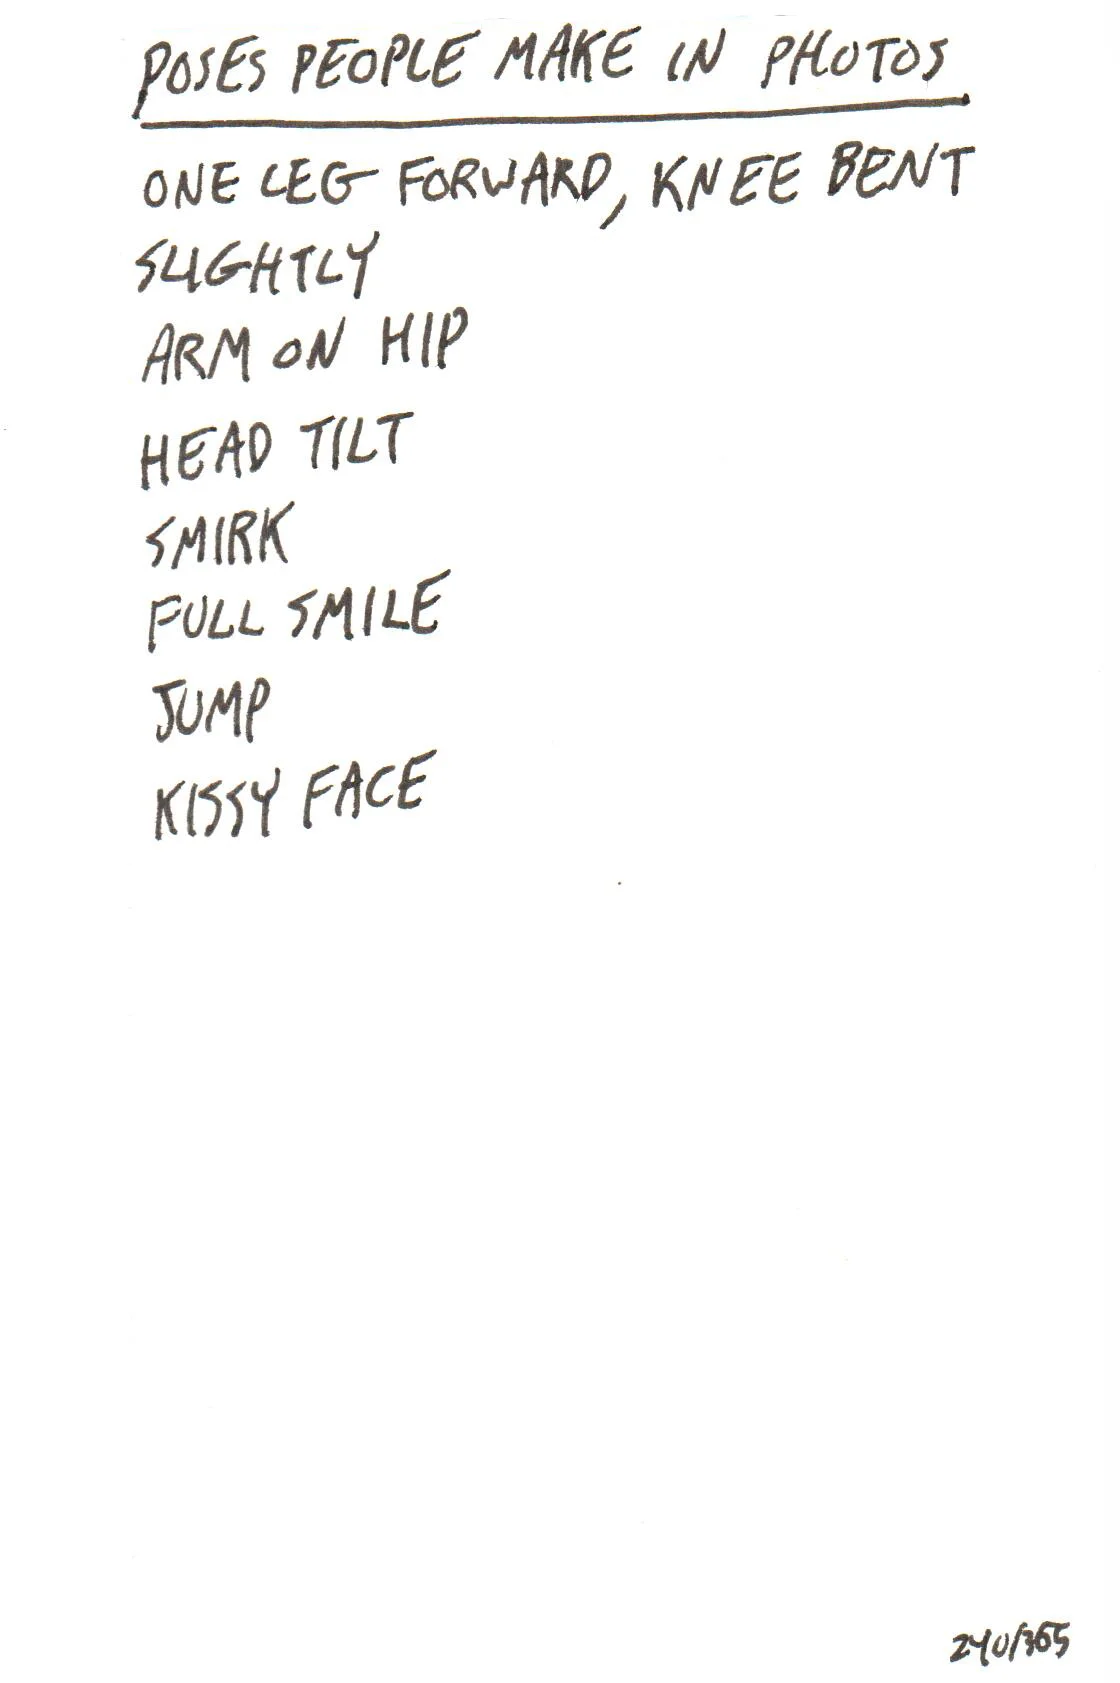 POSES PEOPLE MAKE IN PHOTOS
ONE LEG FORWARD, KNEE BENT
SLIGHTLY
ARM ON HIP
HEAD TILT
SMIRK
FULL SMILE
JUMP
KISSY FACE
240/365